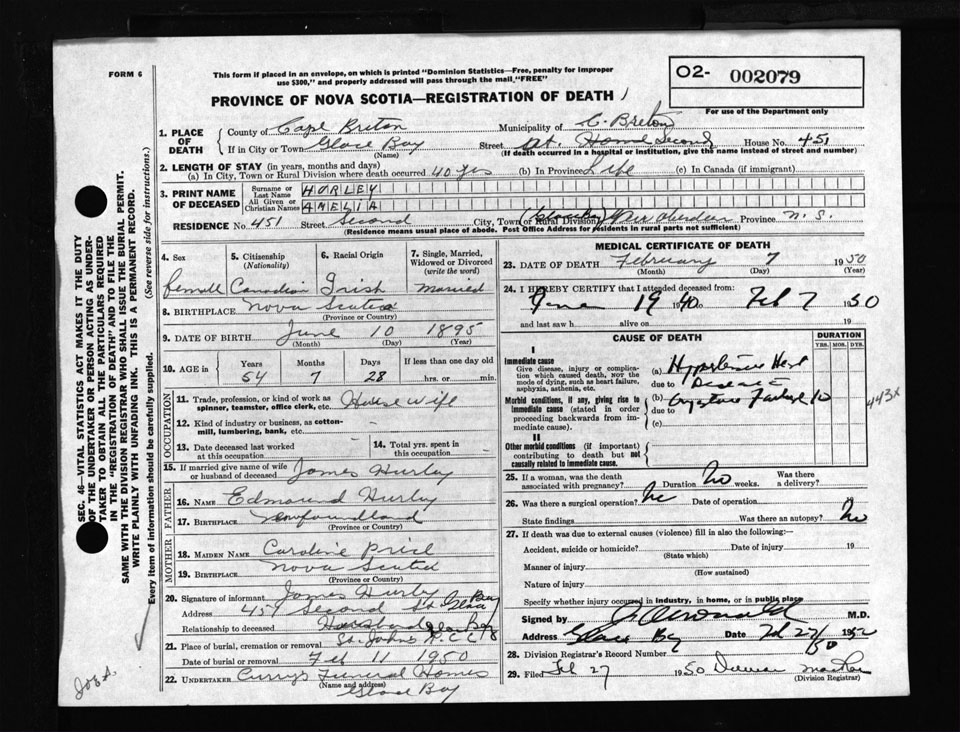 FORM 6
This form if placed in an envelope, on which is printed "Dominion Statistics—Free, penalty for improper
use $300," and properly addressed will pass through the mail, "FREE"
O2- 002079
For use of the Department only
PROVINCE OF NOVA SCOTIA—REGISTRATION OF DEATH
1. PLACE OF DEATH
County of Cape Breton Municipality of C. Breton
If in City or Town Glace Bay (Name) Street at Home Second House No. 451
(If death occurred in a hospital or institution, give the name instead of street and number)
2. LENGTH OF STAY (in years, months and days)
(a) In City, Town or Rural Division where death occurred 40 yrs (b) In Province Life (c) In Canada (if immigrant)
3. PRINT NAME OF DECEASED
Surname or Last Name HURLEY
All Given or Christian Names AMELIA
RESIDENCE No. 451 Street Second City, Town or Rural Division (Glace Bay) New Aberdeen Province N.S.
(Residence means usual place of abode. Post Office Address for residents in rural parts not sufficient)
4. Sex female
5. Citizenship (Nationality) Canadian
6. Racial Origin Irish
7. Single, Married, Widowed or Divorced (write the word) Married
8. BIRTHPLACE Nova Scotia
(Province or Country)
9. DATE OF BIRTH June 10 1895
(Month) (Day) (Year)
10. AGE in Years 54 Months 7 Days 28 If less than one day old hrs. or min.
OCCUPATION
11. Trade, profession, or kind of work as spinner, teamster, office clerk, etc. House Wife
12. Kind of industry or business, as cotton-mill, lumbering, bank, etc.
13. Date deceased last worked at this occupation
14. Total yrs. spent in this occupation
15. If married give name of wife or husband of deceased James Hurley
FATHER
16. NAME Edmound Hurley
17. BIRTHPLACE Newfoundland
(Province or Country)
MOTHER
18. MAIDEN NAME Caroline Price
19. BIRTHPLACE Nova Scotia
(Province or Country)
20. Signature of informant James Hurley
Address 451 Second St. Glace Bay
Relationship to deceased Husband
21. Place of burial, cremation or removal St. Johns R.C.C. Glace Bay
Date of burial or removal Feb 11 1950
22. UNDERTAKER Curry's Funeral Homes
(Name and address)
Glace Bay
MEDICAL CERTIFICATE OF DEATH
23. DATE OF DEATH February 7 1950
(Month) (Day) (Year)
24. I HEREBY CERTIFY that I attended deceased from:
19 40 to Feb 7 1950
and last saw h alive on 19
CAUSE OF DEATH
DURATION
YRS. MOS. DYS.
I
Immediate cause
Give disease, injury or complication which caused death, NOT the mode of dying, such as heart failure, asphyxia, asthenia, etc.
(a) Hypertensive Heart
due to Disease
Morbid conditions, if any, giving rise to immediate cause (stated in order proceeding backwards from immediate cause).
(b) Congestive Failure
due to
(c)
443X
II
Other morbid conditions (if important) contributing to death but not causally related to immediate cause.
25. If a woman, was the death associated with pregnancy? No Duration weeks. Was there a delivery?
26. Was there a surgical operation? No Date of operation
State findings Was there an autopsy? No
27. If death was due to external causes (violence) fill in also the following:—
Accident, suicide or homicide? Date of injury 19
(State which)
Manner of injury
(How sustained)
Nature of injury
Specify whether injury occurred in industry, in home, or in public place
Signed by M.D.
Address Glace Bay Date Feb 27/50
28. Division Registrar's Record Number
29. Filed Feb 27 1950
(Division Registrar)
SEC. 46—VITAL STATISTICS ACT MAKES IT THE DUTY
OF THE UNDERTAKER OR PERSON ACTING AS UNDER-
TAKER TO OBTAIN ALL THE PARTICULARS REQUIRED
IN THE "REGISTRATION OF DEATH" AND TO FILE THE
SAME WITH THE DIVISION REGISTRAR WHO SHALL ISSUE THE BURIAL PERMIT.
WRITE PLAINLY WITH UNFADING INK. THIS IS A PERMANENT RECORD.
Every item of information should be carefully supplied. (See reverse side for instructions.)